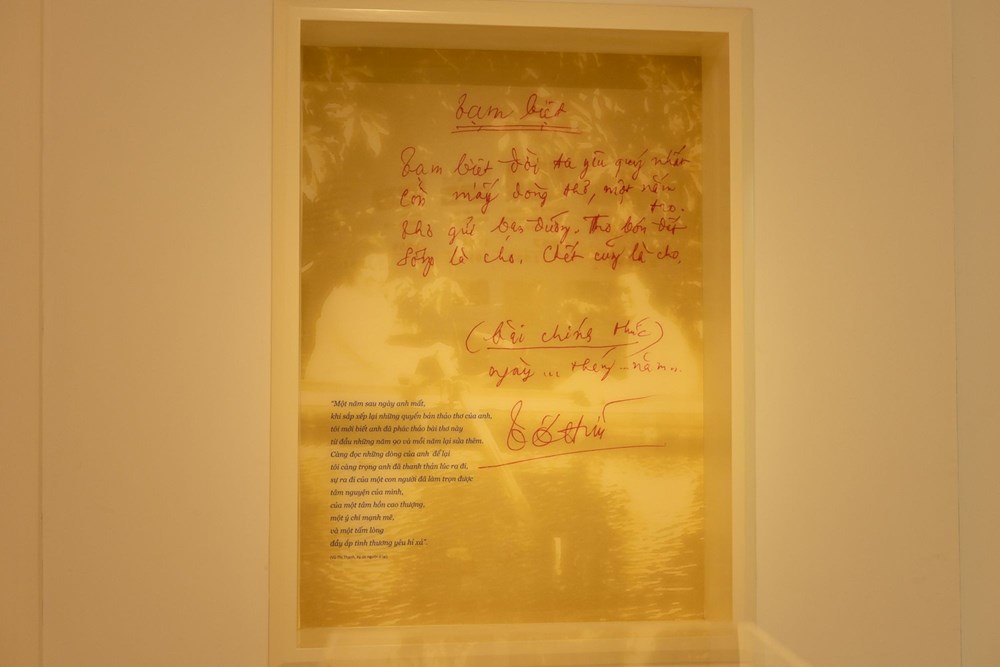 Tạm biệt
Tạm biệt đời ta yêu quý nhất
Còn mấy dòng thơ, một nắm
tro.
Thơ gửi bạn đường. Tro bón đất
Sống là cho. Chết cũng là cho.
(bài chính thức)
ngày ... tháng ... năm ...
Tố Hữu
"Một năm sau ngày anh mất,
khi sắp xếp lại những quyển bản thảo thơ của anh,
tôi mới biết anh đã phác thảo bài thơ này
từ đầu những năm 90 và mỗi năm lại sửa thêm.
Càng đọc những dòng của anh để lại
tôi càng trọng anh đã thanh thản lúc ra đi,
sự ra đi của một con người đã làm trọn được
tâm nguyện của mình,
của một tâm hồn cao thượng,
một ý chí mạnh mẽ,
và một tấm lòng
đầy ắp tình thương yêu hỉ xả".